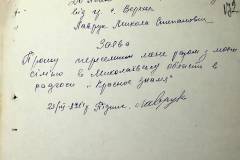 від гр. с. Верхня
Лаврук Микола Степанович
Заява
Прошу переселити мене разом з моєю
сім'єю в Миколаївську область в
радгосп "Красное знамя"
Лаврук